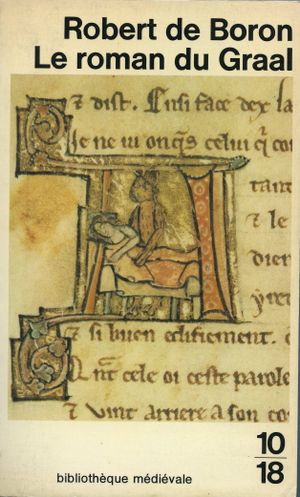 Robert de Boron
Le roman du Graal
& dist. Ensi face dex la
Je ne ui onq̃s celui q̃ co
tant
& le
dien
& si buen edifiement.
Qñt cele oi ceste parole
& uint arriere a son co
10
18
bibliothèque médiévale